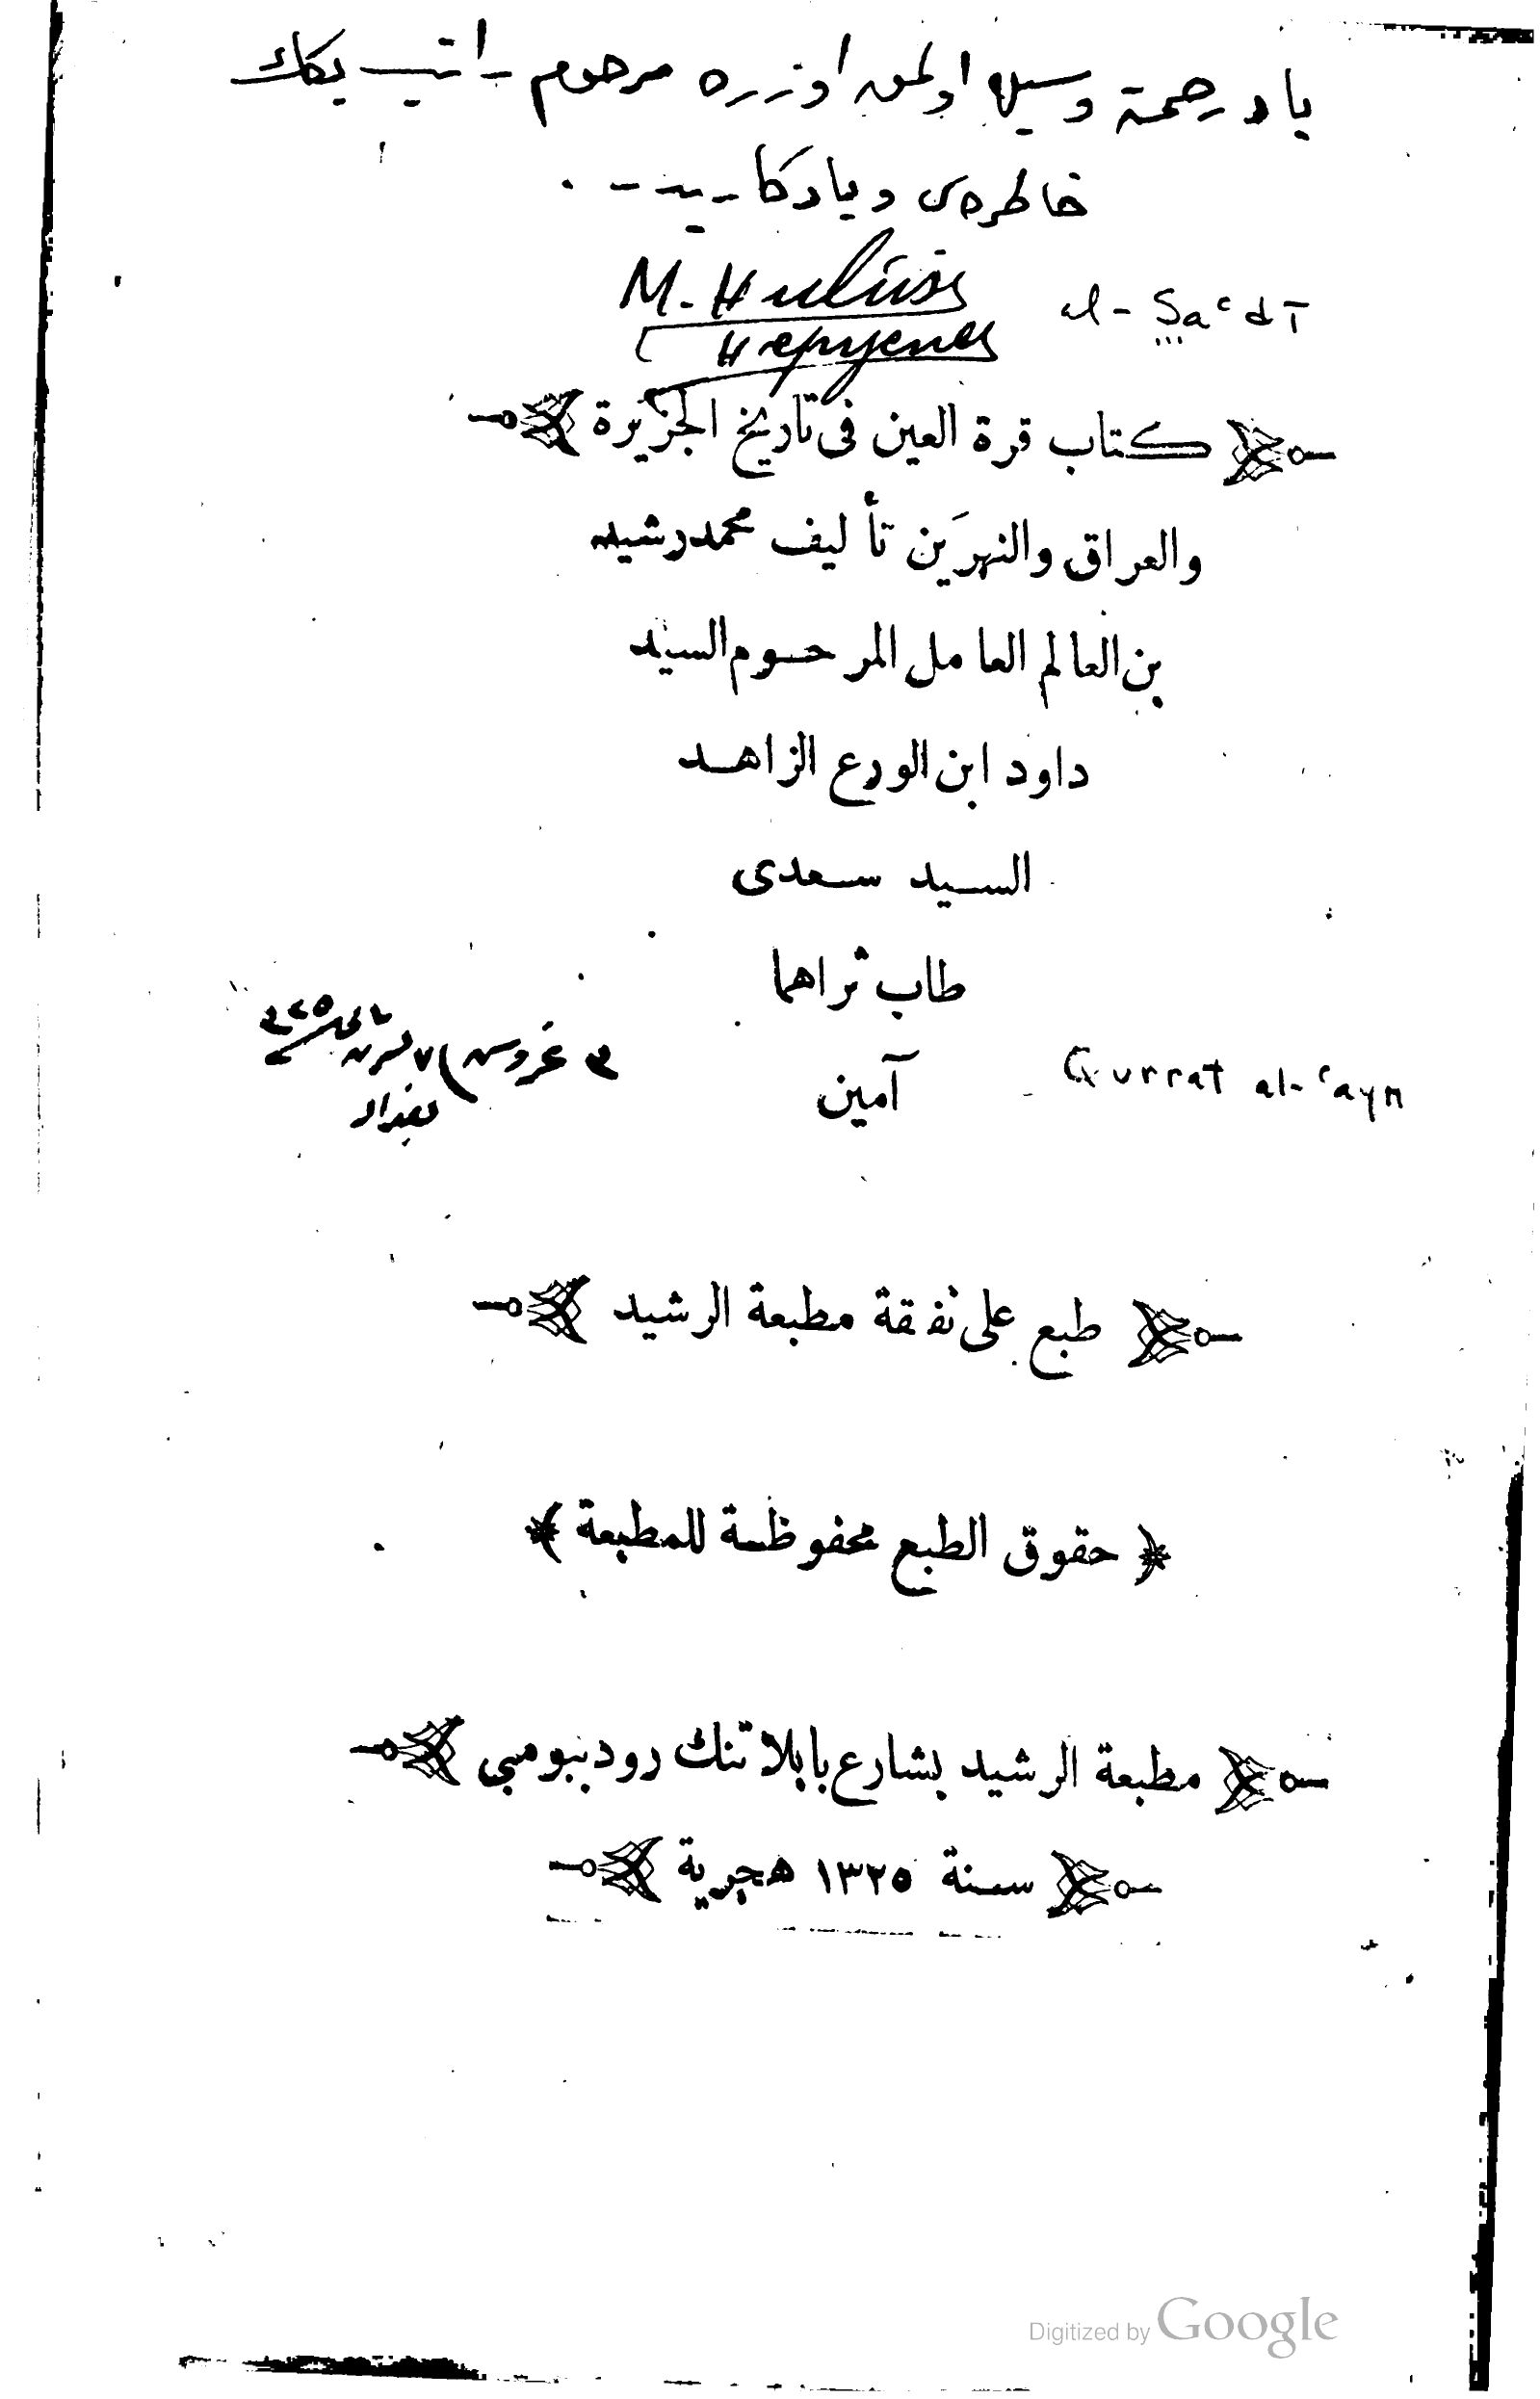 یاد رحمة وسیله اولمق اوزره مرحوم راتب بكك
خاطره‌سی و یادكاریدر .
M. Hulûsi
Hepyener
al-Saʿdī
كتاب قرة العين فى تاريخ الجزيرة
والعراق والنهرَين تأليف محمد رشيد
بن العالم العامل المرحوم السيد
داود ابن الورع الزاهد
السيد سعدى
طاب ثراهما
آمين
٣ غروس
بغداد
Qurrat al-ʿayn
طبع على نفقة مطبعة الرشيد
﴿ حقوق الطبع محفوظة للمطبعة ﴾
مطبعة الرشيد بشارع بابلا تنك رود ببومبى
سنة ١٣٢٥ هجرية
Digitized by Google